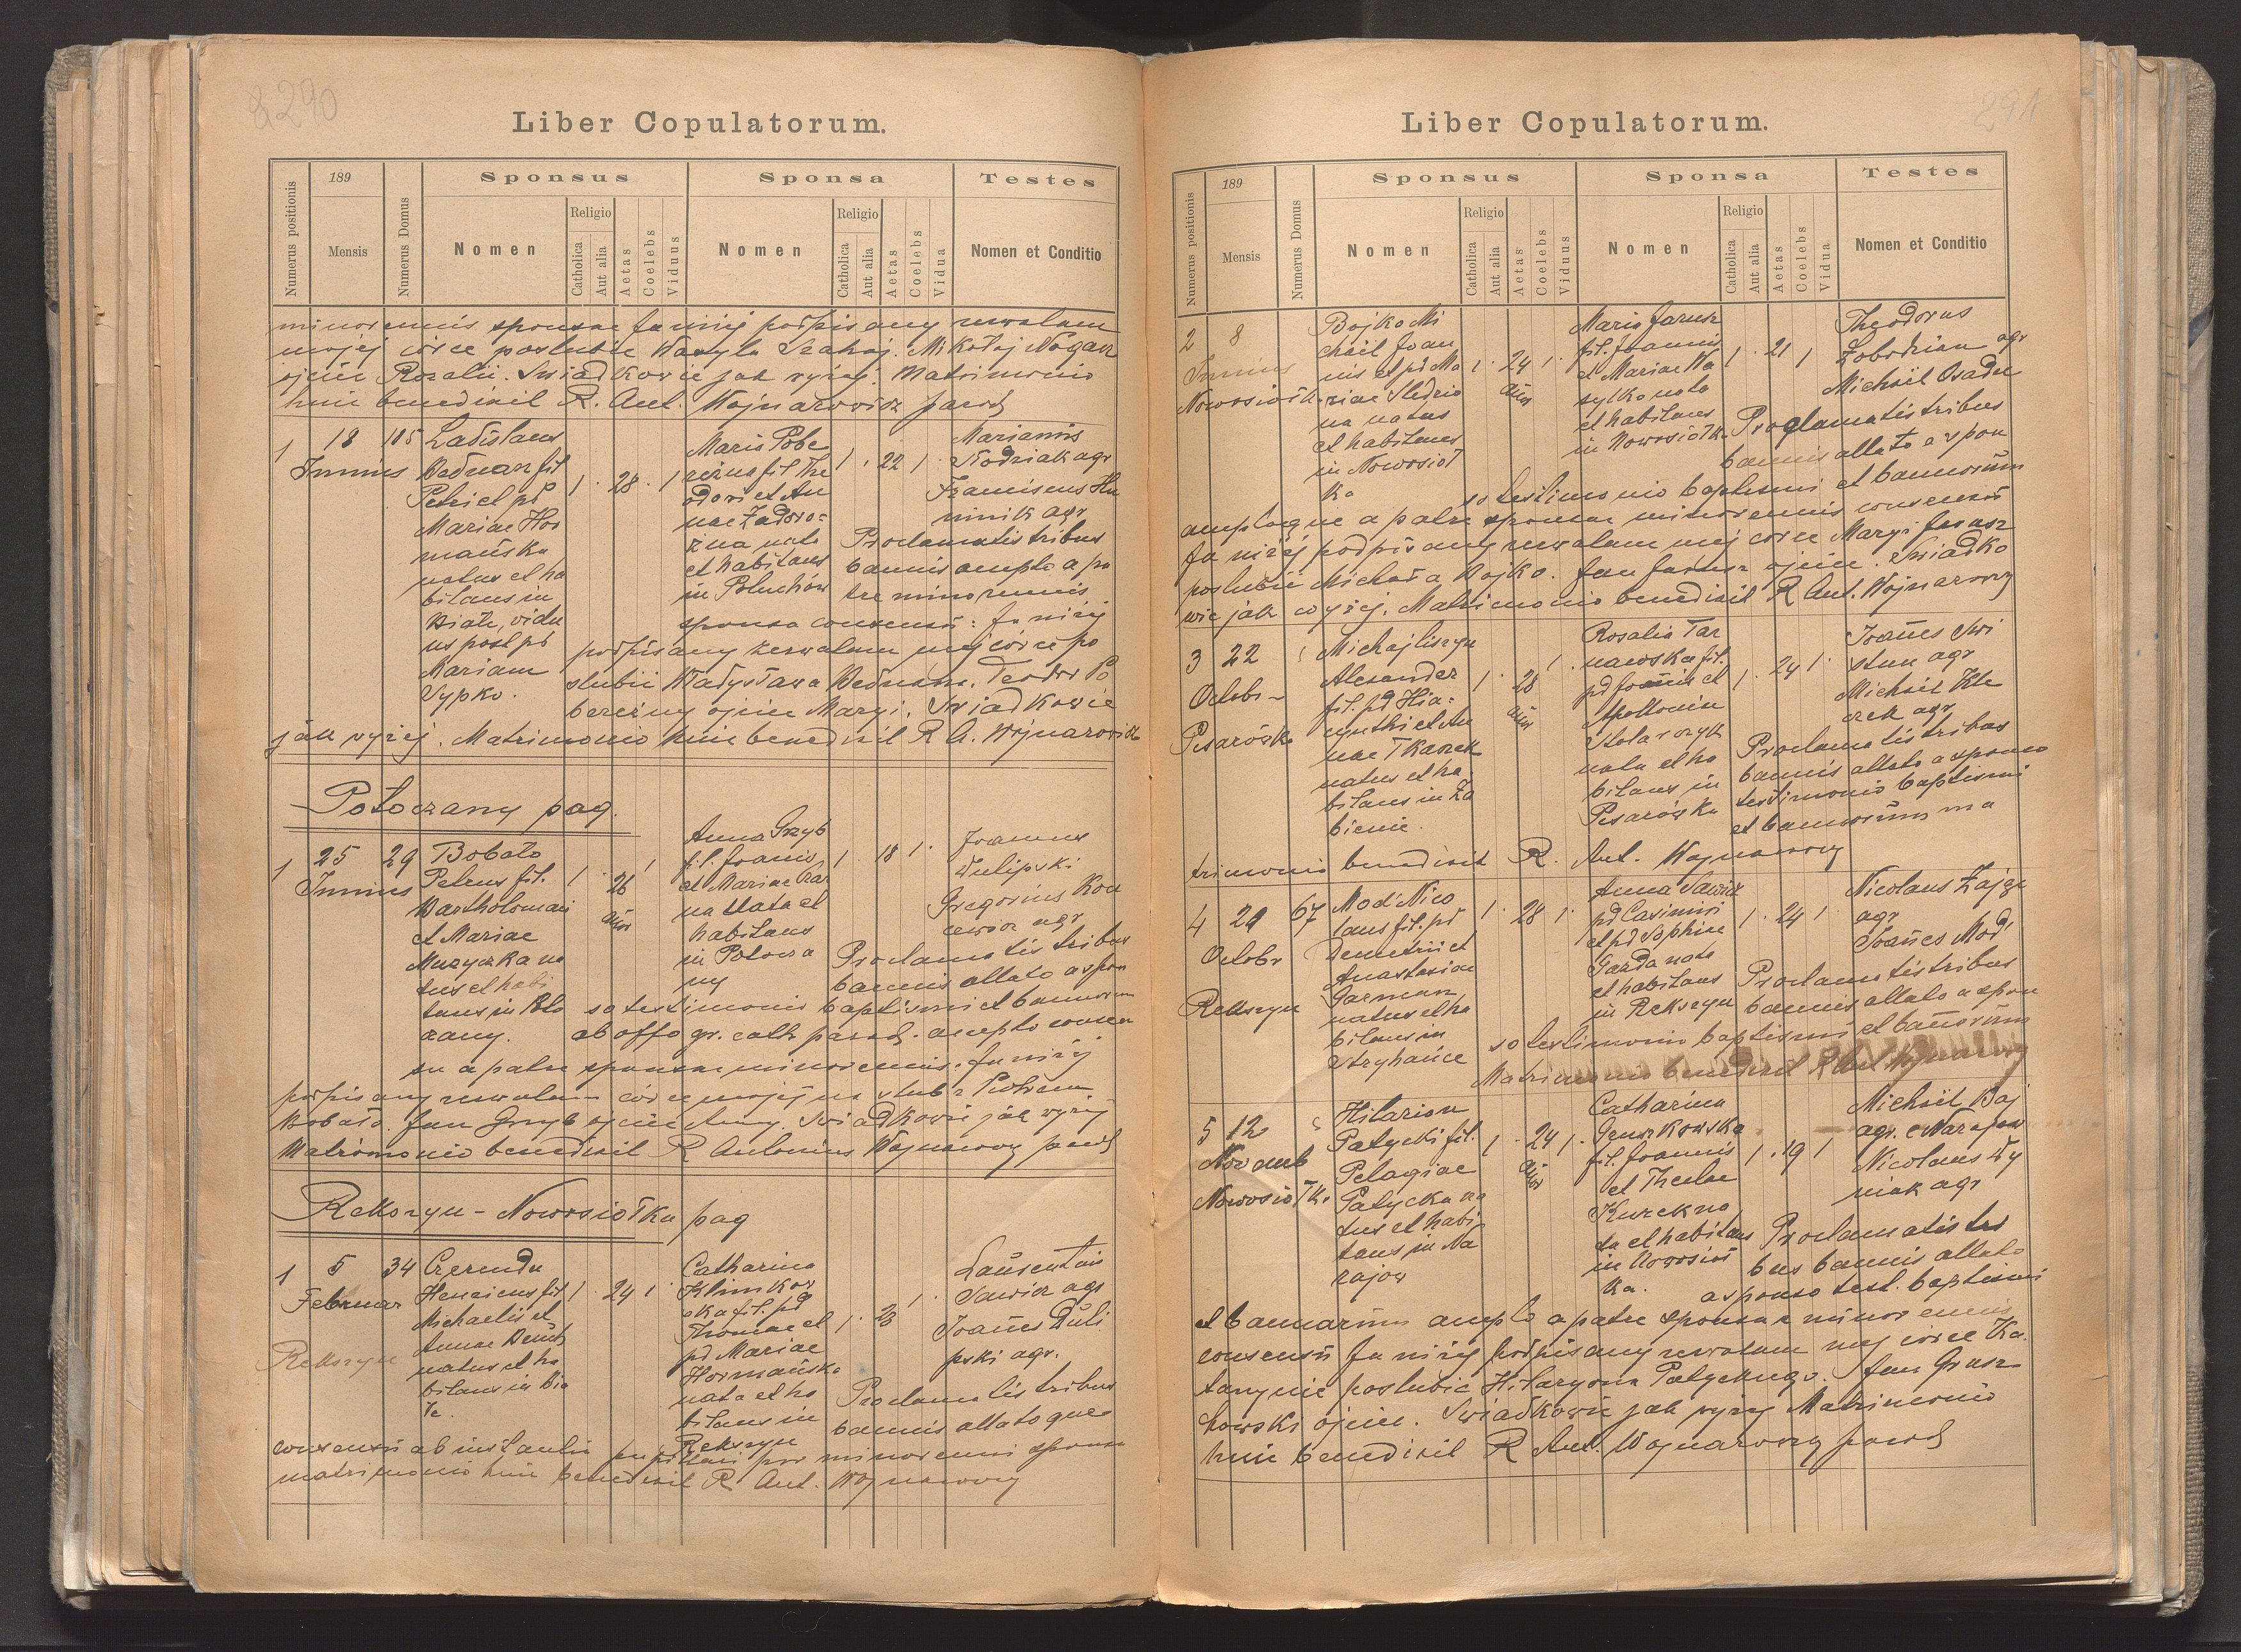 290
Liber Copulatorum.
Numerus positionis
189
Mensis
Numerus Domus
Sponsus
Nomen
Religio
Catholica
Aut alia
Aetas
Coelebs
Viduus
Sponsa
Nomen
Religio
Catholica
Aut alia
Aetas
Coelebs
Vidua
Testes
Nomen et Conditio
minorennis sponsae Ja niżej podpisany zezwalam
mojej córce poslubić Wasyla Mikołaj
ojciec Rozalii. Swiadkowie jak wyżej. Matrimonio
huic benedixit R. Ant. Wojnarowicz paroch
1 18 185 Ladislaus
Junius Bednarz fil
Petri et pd
Mariae Hor
mańska
natus et ha
bitans in
Białe, vidu
us post pd
Mariam
Sypko.
1 28 1
Maria Pobe
reżna fil. The
odori et An
nae Zadoro=
żna nata
et habitans
in Poluchów
1 22 1
Mariannis
Nodziak agr
Franciscus Hu
minik agr
Proclamatis tribus
bannis accepto a pa
tre minorennis
sponsa consensu: Ja niżej
podpisany zezwalam mej córce po
slubić Władysława Bednarz. Teodor Po
bereżny ojciec Maryi. Swiadkowie
jak wyżej. Matrimonio huic benedixit R A. Wojnarowicz
Potoczany pag.
1 25 29 Bobało
Junius Petrus fil.
Bartholomaei
et Mariae
Muzyczka na
tus et habi
tans in Poto
czany.
1 26 1
Anna Grzyb
fil. Joannis
et Mariae Czar
na nata et
habitans
in Potocza
ny
1 18 1
Joannes
Dulipski
Gregorius Kon
cewicz agr
Proclamatis tribus
bannis allato a spon
so testimonio baptismi et bannorum
ab offo gr. cath paroch. accepto consen
su a patre sponsae minorennis. Ja niżej
podpisany zezwalam córce mojej na slub z Piotrem
Bobało. Jan Grzyb ojciec Anny. Swiadkowie jak wyżej
Matrimonio benedixit R Antonius Wojnarowicz paroch
Rekszyn - Nowosiołka pag
1 5 34 Czerenda
Februar Henricus fil
Michaelis et
Annae
natus et ha
bitans in Bia
łe.
Rekszyn
1 24 1
Catharina
Klimkow
ska fil. pd
Thomae et
pd Mariae
Hormańska
nata et ha
bitans in
Rekszyn
1 23 1
Laurentius
Sawicz agr
Joañes Duli
pski agr.
Proclamatis tribus
bannis allatoque
consensu ab instantia pupillari pro minorenni sponsa
matrimonio huic benedixit R Ant. Wojnarowicz
291
Liber Copulatorum.
Numerus positionis
189
Mensis
Numerus Domus
Sponsus
Nomen
Religio
Catholica
Aut alia
Aetas
Coelebs
Viduus
Sponsa
Nomen
Religio
Catholica
Aut alia
Aetas
Coelebs
Vidua
Testes
Nomen et Conditio
2 8
Junius
Nowosiołka
Bojko Mi
chaël Joan
nis et pd Ma
riae Sledzio
na natus
et habitans
in Nowosioł
ka
1 24 1
Maria Jarusz
fil. Joannis
et Mariae Wa
sylko nata
et habitans
in Nowosiołka
1 21 1
Theodorus
agr
Michaël Osadu
Proclamatis tribus
bannis allato a spon
so testimonio baptismi et bannorum
accepto que a patre sponsae minorennis consensu
Ja niżej podpisany zezwalam mej córce Maryi Jarusz
poslubić Michała Bojko. Jan Jarusz ojciec. Swiadko
wie jak wyżej. Matrimonio benedixit R Ant. Wojnarowicz
3 22
Octobr
Pisarówka
Michajliszyn
Alexander
fil. pd Hia=
cynthi et An
nae Tkaczek
natus et ha
bitans in Za
bienie.
1 28 1
Rosalia Tar
nawska fil.
pd Joannis et
Apolloniae
Stolarczyk
nata et ha
bitans in
Pisarówka
1 24 1
Joañes Swi
stun agr
Michaël Kle
czek agr
Proclamatis tribus
bannis allato a sponso
testimonio baptismi
et bannorum ma
trimonio benedixit R. Ant. Wojnarowicz
4 29 67
Octobr
Rekszyn
Mod Nico
laus fil. pd
Demetrii et
Anastasiae
Garman
natus et ha
bitans in
Stryhańce
1 28 1
Anna Sawicz
pd Casimiri
et pd Sophiae
Garda nata
et habitans
in Rekszyn
1 24 1
Nicolaus Zając
agr
Joañes Mod,
Proclamatis tribus
bannis allato a spon
so testimonio baptismi et bañorum
Matrimonio benedixit R Ant Wojnarowicz
5 12
Novemb
Nowosiołka
Hilarion
Patycki fil.
Pelagiae
Patycka na
tus et habi
tans in Na
rajow
1 24 1
Catharina
Gruszkowska
fil. Joannis
et Theclae
Kurek na
ta et habitans
in Nowosioł
ka.
1 19 1
Michaël Baj
agr. e Narajow
Nicolaus Dy
niak agr
Proclamatis tri
bus bannis allato
a sponso test. baptismi
et bannorum accepto a patre sponsae minorennis
consensu Ja niżej podpisany zezwalam mej córce Ka
tarzynie poslubić Hilaryona Patyckiego. Jan Grusz
kowski ojciec. Swiadkowie jak wyżej Matrimonio
huic benedixit R Ant. Wojnarowicz paroch